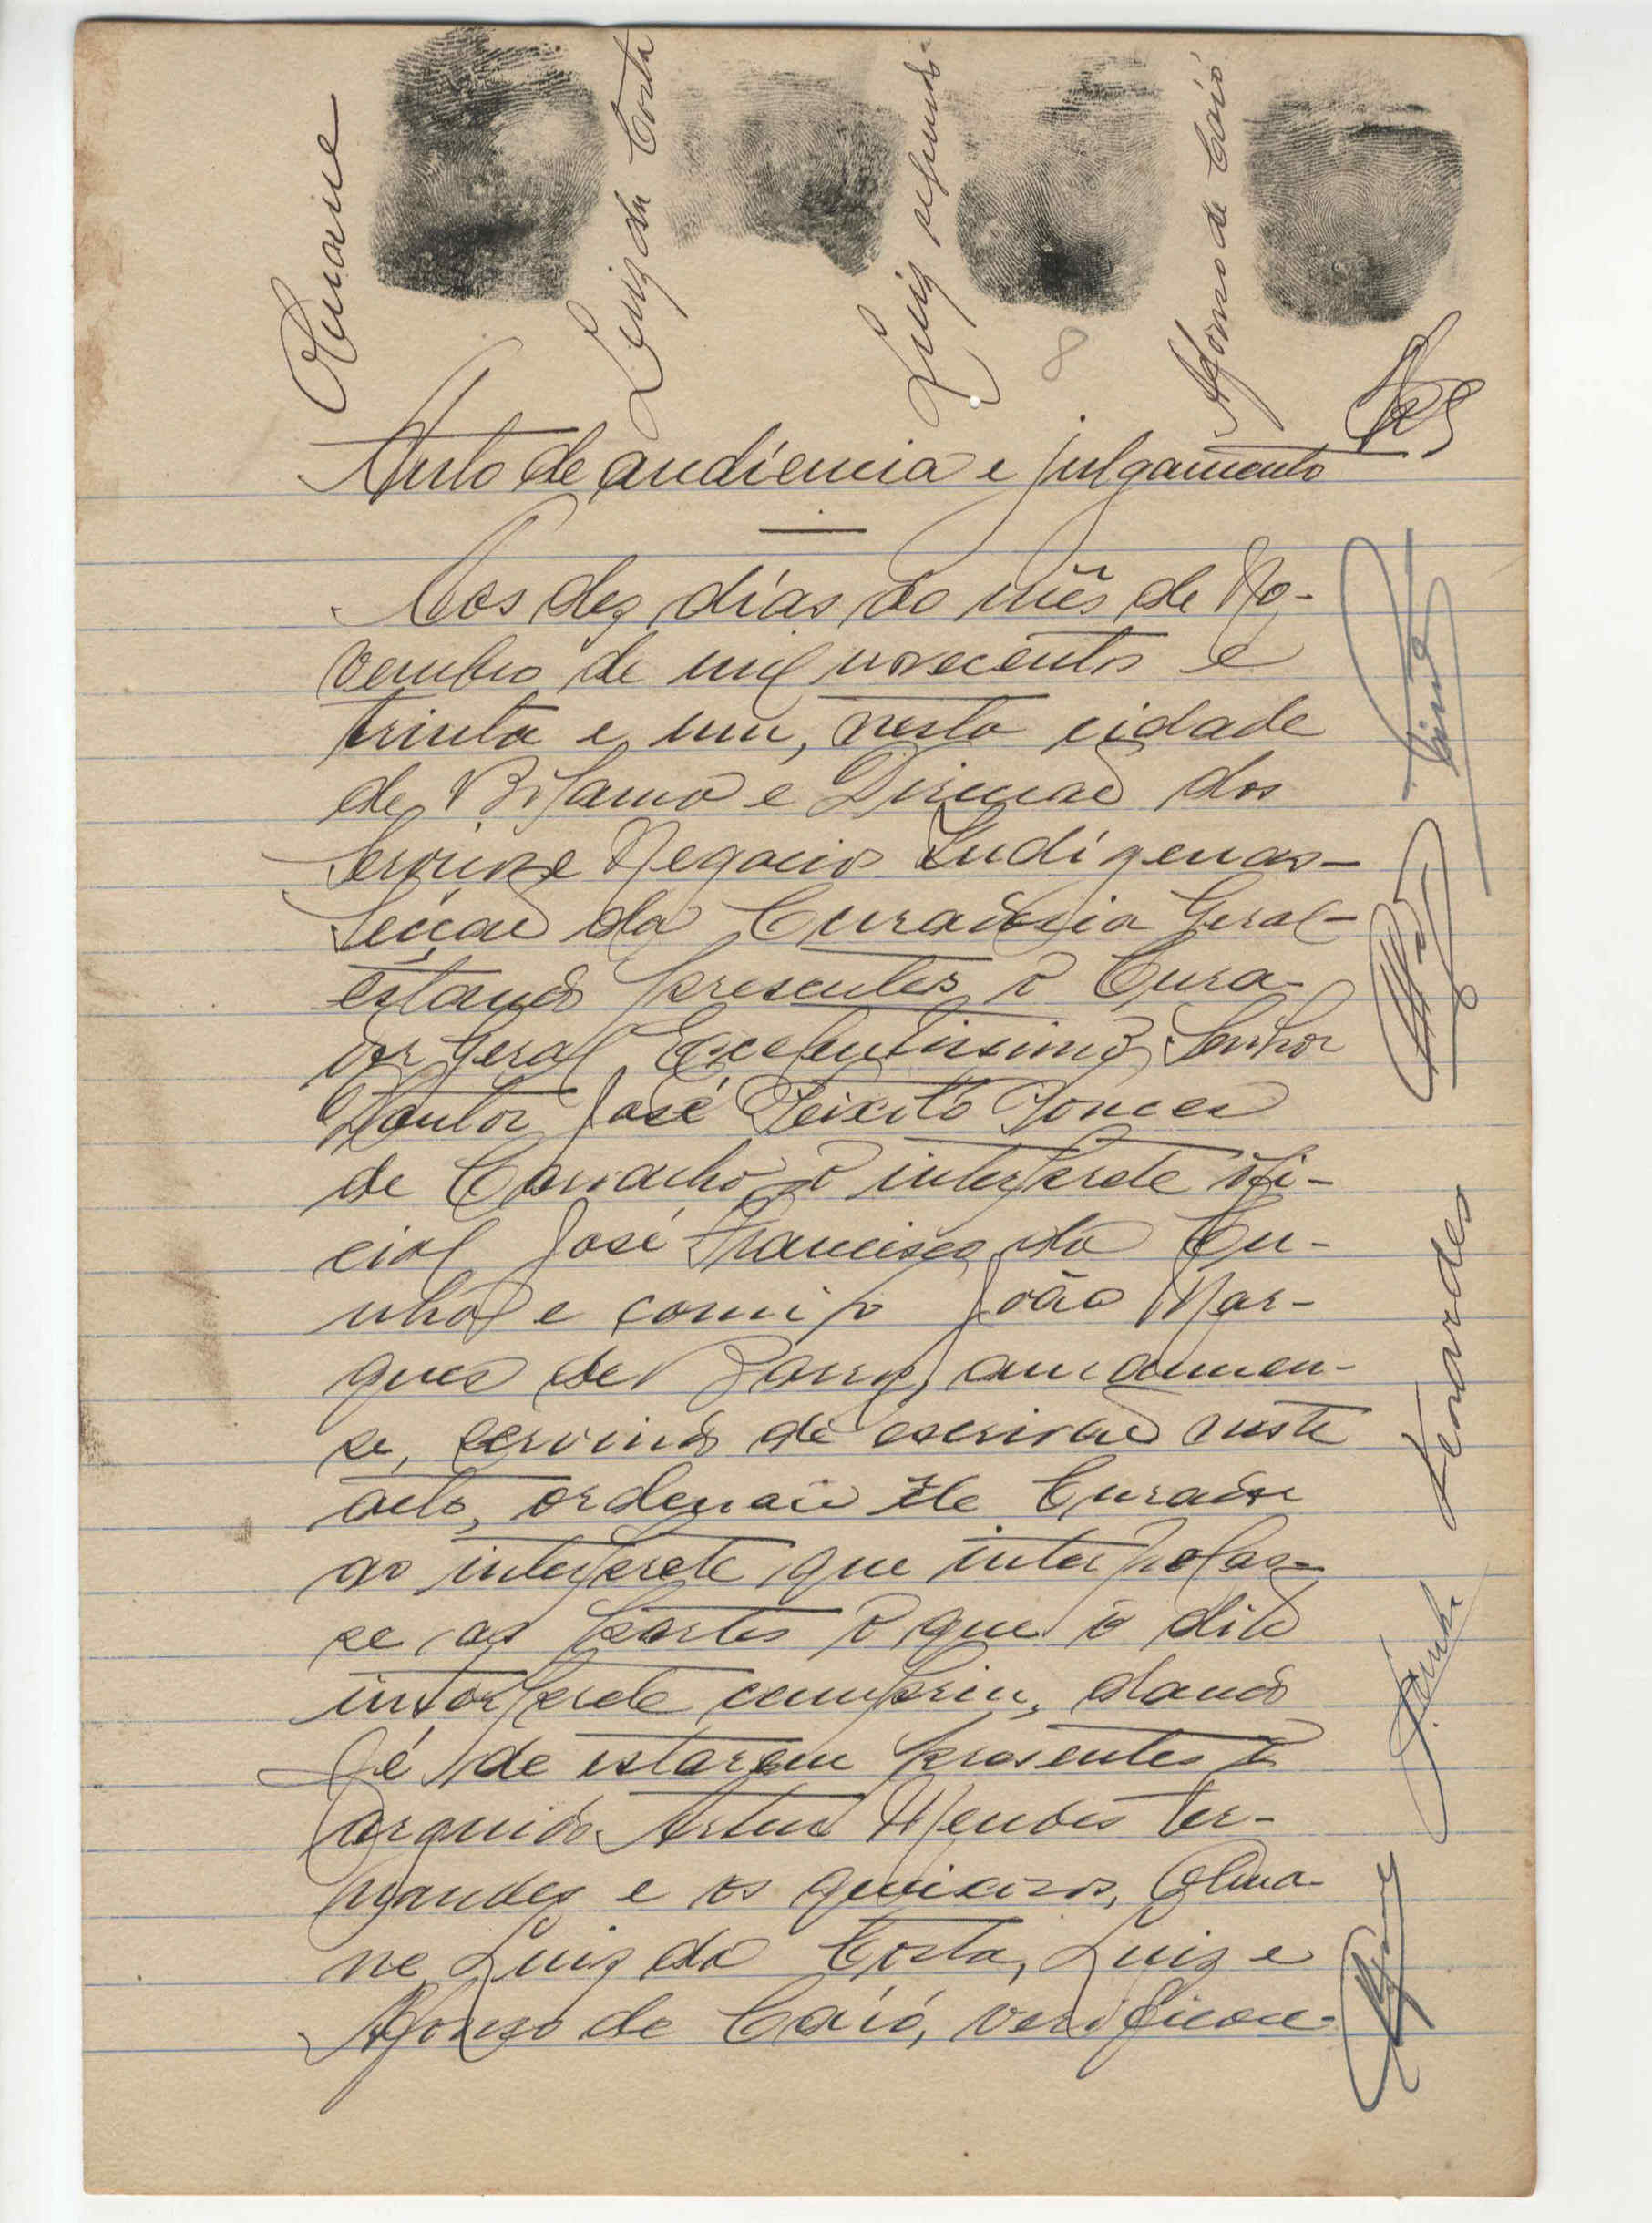 Olumane
Luiz da Costa
Luiz segundo
Afonso de Caió
8
Auto de audiencia e julgamento
Aos dez dias do mês de No-
vembro de mil novecentos e
trinta e um, nesta cidade
de Bolama e Direcção dos
Serviços e Negocios Indígenas-
Secção da Curadoria Geral-
estando presentes o Cura-
dor Geral Excelentissimo Senhor
Doutor José Peixoto Ponces
de Carvalho, o interprete ofi-
cial José Francisco da Cu-
nha e comigo João Mar-
ques de Barros, amanuen-
se, servindo de escrivão neste
acto, ordenou êle Curador
ao interprete que interpelas-
se as partes o que o dito
interprete cumpriu, dando
fé de estarem presentes o
arguido Artur Mendes Fer-
nandes e os queixosos, Oluma-
ne, Luiz da Costa, Luiz e
Afonso de Caió, verificou-
Fernandes